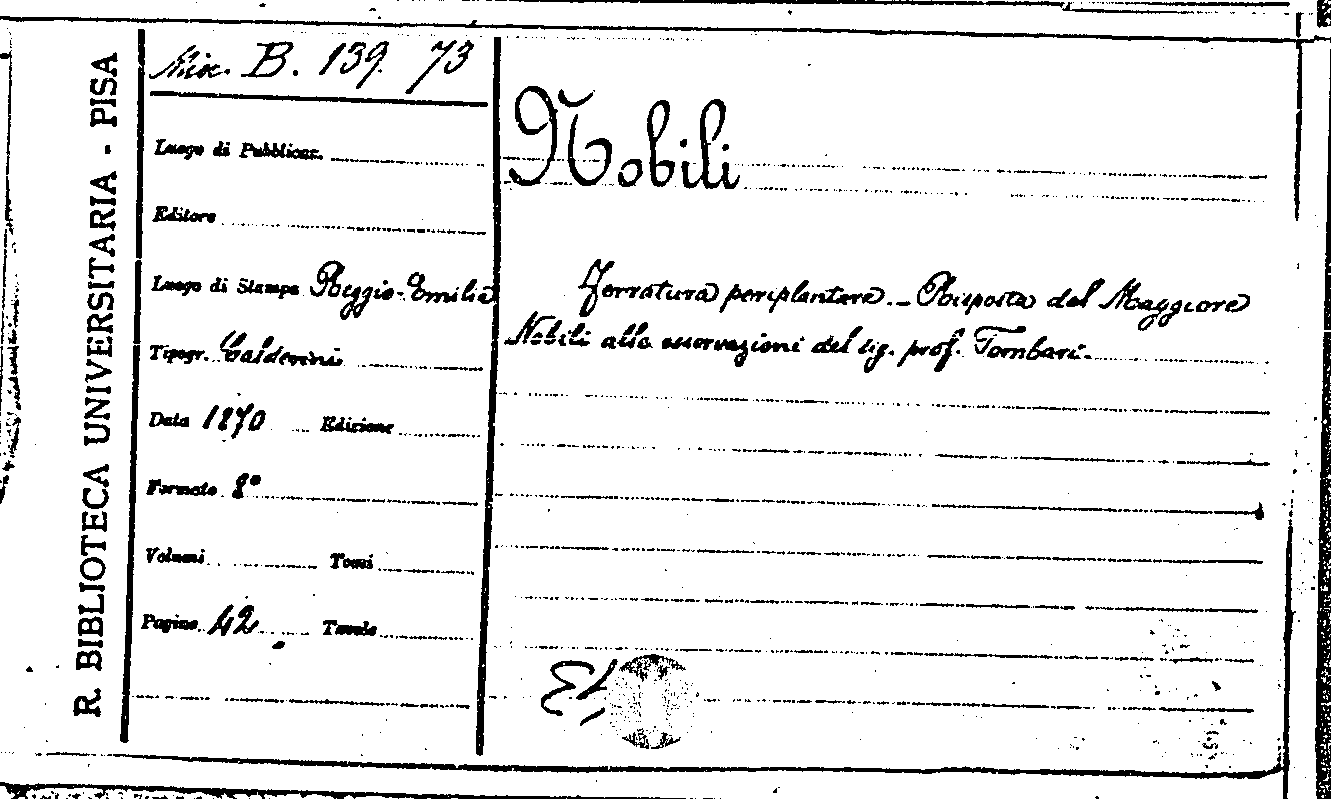 R. BIBLIOTECA UNIVERSITARIA - PISA
Misc. B. 139. 73
Luogo di Pubblicaz.
Editore
Luogo di Stampa Reggio-Emilia
Tipogr. Calderini
Data 1870 Edizione
Formato 8°
Volumi Tomi
Pagine 42 Tavole
Nobili
Ferratura periplantare. - Risposta del Maggiore
Nobili alle osservazioni del sig. prof. Tombari.